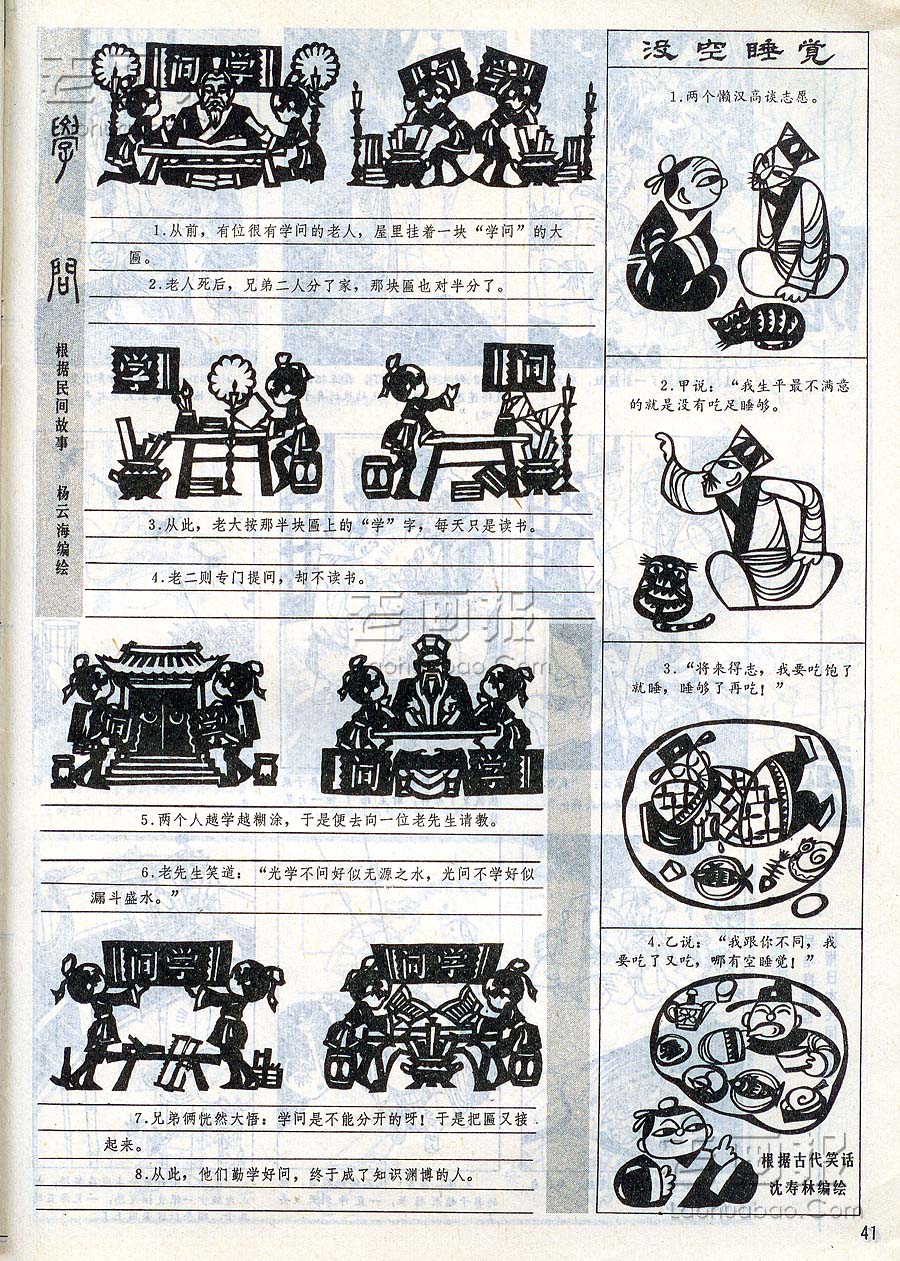 學問
根据民间故事 杨云海编绘
问学
问 学
1.从前，有位很有学问的老人，屋里挂着一块“学问”的大
匾。
2.老人死后，兄弟二人分了家，那块匾也对半分了。
学
问
3.从此，老大按那半块匾上的“学”字，每天只是读书。
4.老二则专门提问，却不读书。
问 学
问 学
5.两个人越学越糊涂，于是便去向一位老先生请教。
6.老先生笑道：“光学不问好似无源之水，光问不学好似
漏斗盛水。”
问学
问学
7.兄弟俩恍然大悟：学问是不能分开的呀！于是把匾又接
起来。
8.从此，他们勤学好问，终于成了知识渊博的人。
没空睡觉
1.两个懒汉高谈志愿。
2.甲说：“我生平最不满意
的就是没有吃足睡够。
3.“将来得志，我要吃饱了
就睡，睡够了再吃！”
4.乙说：“我跟你不同，我
要吃了又吃，哪有空睡觉！”
根据古代笑话
沈寿林编绘
41
老画报
laohuabao.Com